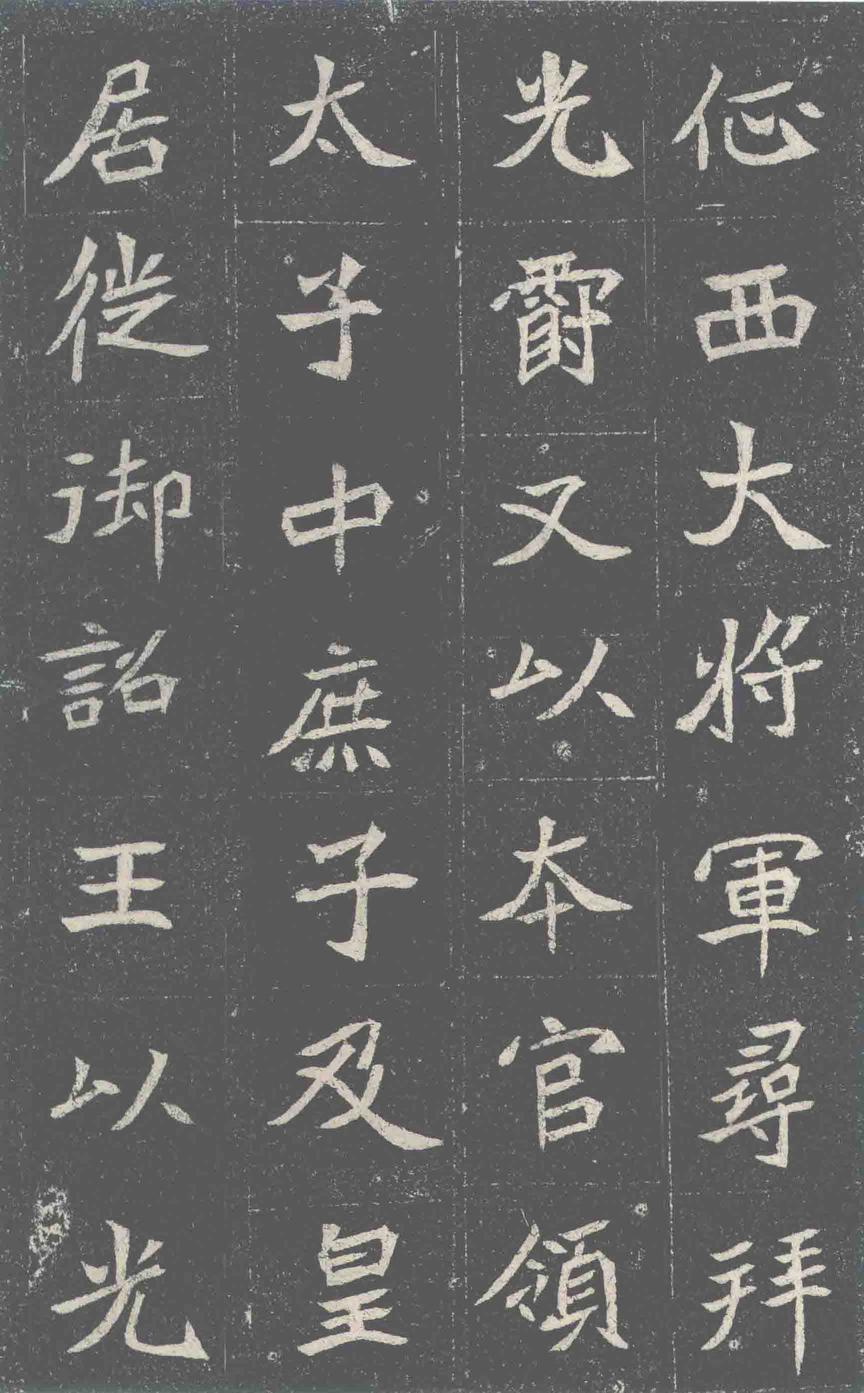 征西大將軍尋拜
光爵又以本官領
太子中庶子及皇
居徙御詔王以光